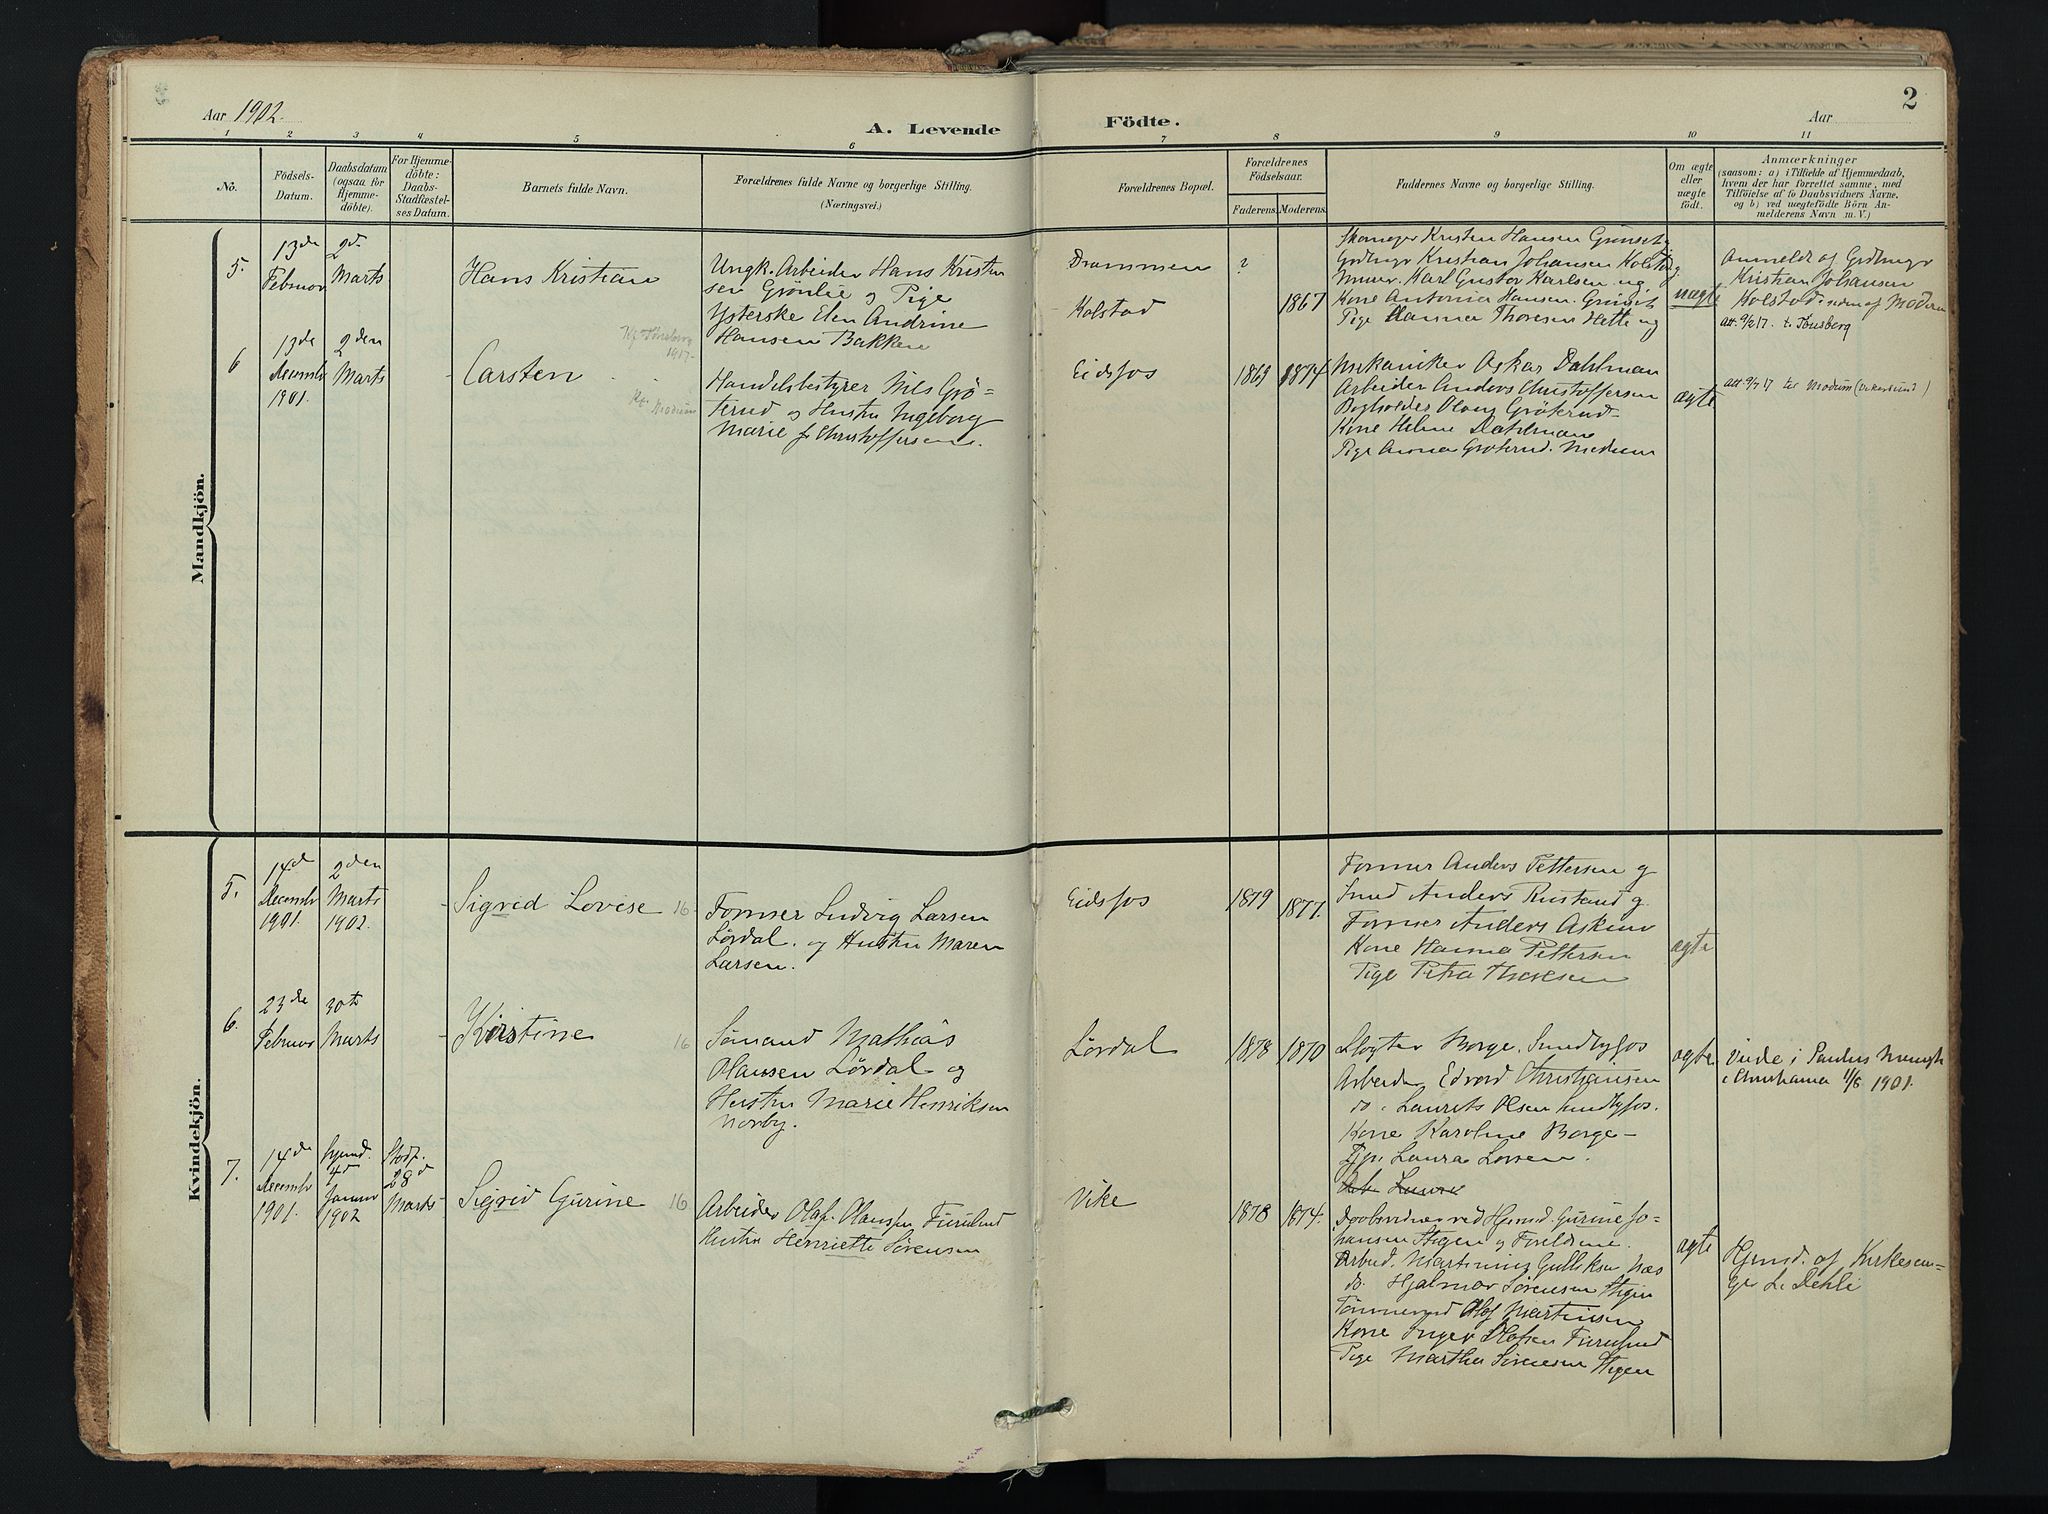 2
Aar 1902.
A. Levende Födte.
Aar
1 2 3 4 5 6 7 8 9 10 11
No.
Födsels-
Datum.
Daabsdatum
(ogsaa for
Hjemme-
döbte).
For Hjemme-
döbte:
Daabs-
Stadfæstel-
ses Datum.
Barnets fulde Navn.
Forældrenes fulde Navne og borgerlige Stilling.
(Næringsvei.)
Forældrenes Bopæl.
Forældrenes
Födselsaar.
Faderens.
Moderens.
Faddernes Navne og borgerlige Stilling.
Om ægte
eller
uægte
födt.
Anmærkninger
(saasom: a) i Tilfælde af Hjemmedaab,
hvem der har forrettet samme, med
Tilföielse af to Daabsvidners Navne,
og b) ved uægtefödte Börn An-
melderens Navn m. V.)
Mandkjön.
5.
13de
Februar
2d.
Marts
Hans Kristian
Ungk. Arbeider Hans Kristen
sen Grönlie og Pige
Ysterske Elen Andrine
Hansen Bakken
Drammen
Kolstad
?
1867
Skomager Kristen Hansen Grimset
Gdbrugr Kristian Johansen Kolstad g.
Murer Karl Gustav Karlsen ug.
Kone Antonia Hansen Grimset
Pige Hanna Thoresen Hette ug
uægte
Anmeldt af Grdbrugr
Kristian Johansen
Kolstad
Att. 9/2 17. t. Tönsberg
6
13de
Decembr
1901.
2den
Marts
Carsten
Tönsberg
1917
Modum
Handelsbestyrer Nils Grö-
terud og Hustru Ingeborg
Marie f. Christoffersen.
Eidsfos
1869
1874
Mekaniker Oskar Dahlman
Arbeider Anders Christoffersen
Bogholder Olaug Gröterud
Kone Helene Dahlman
Pige Anna Gröterud. Modum
ægte
Att 9/7 17 til Modum (Vikersund)
Kvindekjön.
5.
14d
Decembr
1901.
2den
Marts
1902.
Sigrid Lovise 16
Former Ludvig Larsen
Lördal. og Hustru Maren
Larsen.
Eidsfos
1879
1877.
Former Anders Pettersen g
Smed Anders Rustand g.
Former Anders Asker
Kone Hanna Pettersen
Pige Petra Thoresen
ægte
6.
23de
Februar
30te
Marts
Kirstine 16
Sömand Mathias
Hansen Lördal og
Hustru Marie Henriksen
Norby.
Lördal
1878
1870
Slagter Borge. Sundbyfos
Arbeider Edvard Christiansen
do. Laurits Olsen Sundbyfos.
Kone Karoline Borge
Laura Larsen.
ægte
Viede i Paulus Menigh.
i Christiania 11/8 1901.
7.
14de
Decembr
1901.
Hjemd.
4d
Januar
1902
Stadf.
28d
Marts
Sigrid Gurine 16
Arbeider Olaf Hansen Furulund
Hustru Henriette Sörensen
Vike
1878
1874.
Daabsvidner ved Hjemd. Gurine Jo-
hansen Stigen og Forældrene.
Arbeid. Martinius Gulliksen Næs
do. Hjalmar Sörensen Stigen
Tömmermd Olaf Martinsen
Kone Inger Hansen Furulund
Pige Martha Sörensen Stigen
ægte
Hjemd. af Kirkesan-
ger L. Dehli